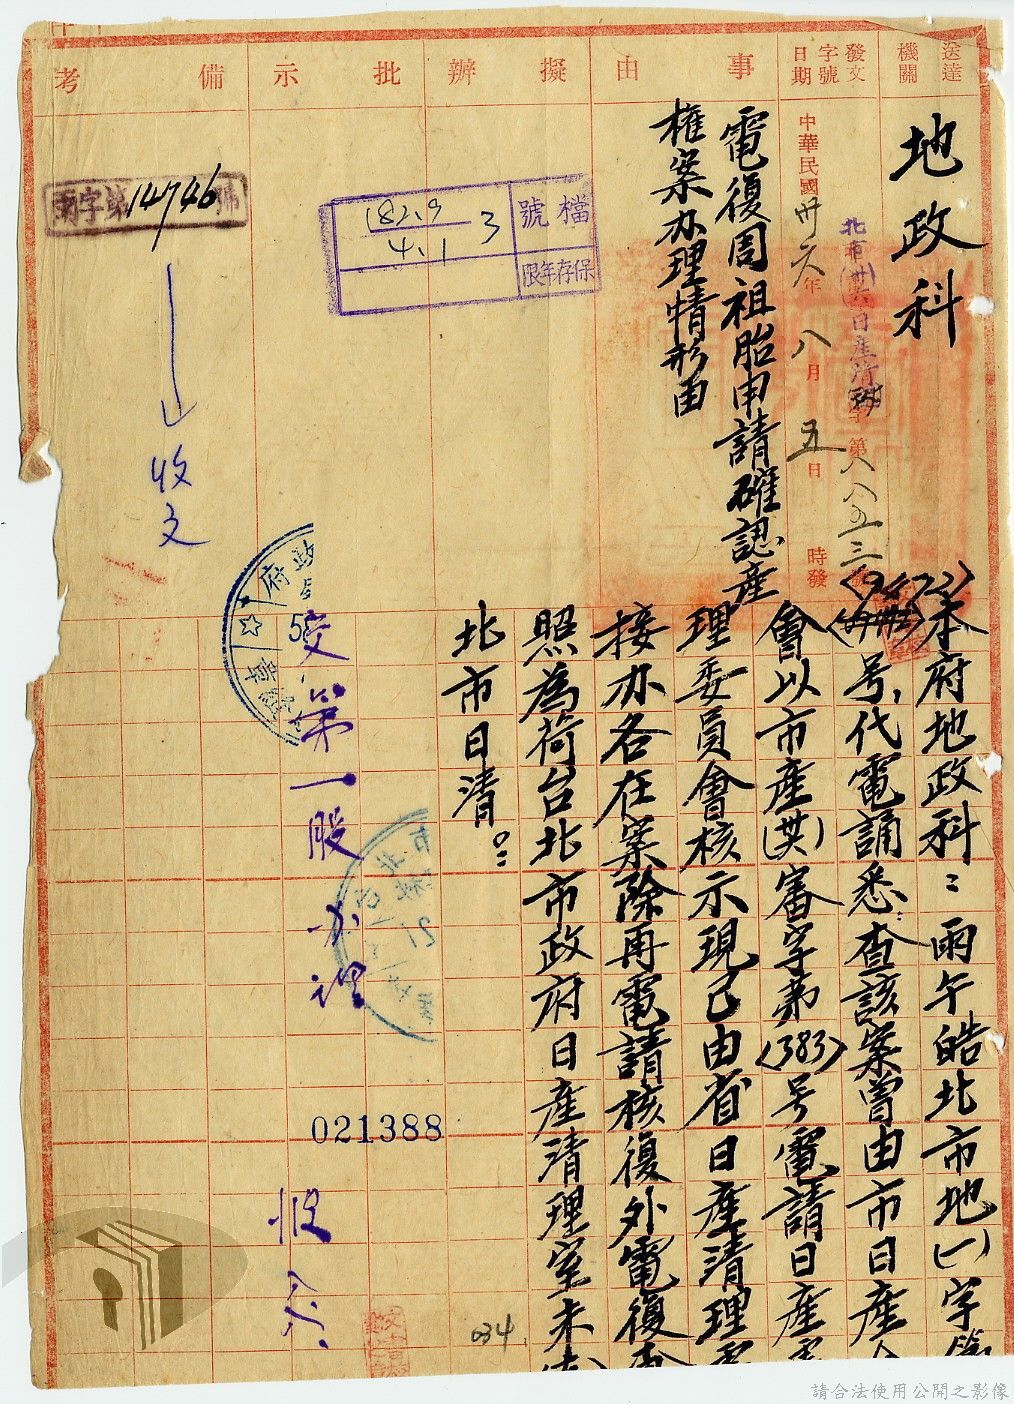 送達
機關
地政科
發文
字號
日期
北市(卅六)日產清
字第八八五三號
中華民國卅六年八月五日
時發
事由
電復周祖胎申請確認產
權案办理情形由
擬辦
批示
備考
檔號
182.9
4.1
3
保存年限
雨字第14746號
收文
<9472>
本府地政科：雨午皓北市地(一)字第
号代電誦悉：查該案曾由市日產
會以市產(卅)審字第<383>号電請日產
理委員會核示現已由省日產清理
接办各在案除再電請核復外電復
照為荷台北市政府日產清理室未
北市日清。
交第一股办理
021388
034
請合法使用公開之影像